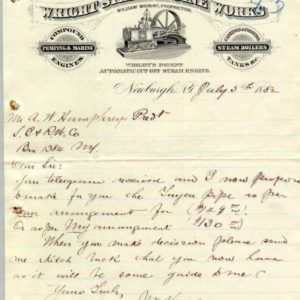 WRIGHT STEAM ENGINE WORKS
WILLIAM WRIGHT, PROPRIETOR.
COMPOUND
PUMPING & MARINE
ENGINES.
STEAM BOILERS
TANKS &c
WRIGHT'S PATENT
AUTOMATIC CUT OFF STEAM ENGINE.
Newburgh, July 5th 1882
Mr A. W. Humphreys Prest
Co
Box 1384 NY.
Dear Sir:
Your telegram received and I now propose
to make for you the pipe as per
your arrangement for ($149 00)
Or as per My arrangement ($130 00)
When you make decision please send
me sketch that you now have
as it will be some guide to me
Yours Truly
Wm